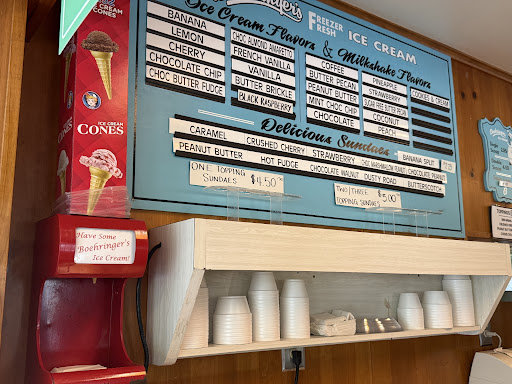 ICE CREAM
CONES
ICE CREAM
CONES
Have Some
Boehringer's
Ice Cream!
FREEZER
FRESH
ICE CREAM
Ice Cream Flavors & Milkshake Flavors
BANANA
LEMON
CHERRY
CHOCOLATE CHIP
CHOC BUTTER FUDGE
CHOC ALMOND AMARETTO
FRENCH VANILLA
VANILLA
BUTTER BRICKLE
BLACK RASPBERRY
COFFEE
BUTTER PECAN
PEANUT BUTTER
MINT CHOC CHIP
CHOCOLATE
PINEAPPLE
STRAWBERRY
SUGAR FREE BUTTER PECAN
COCONUT
PEACH
COOKIES & CREAM
Delicious Sundaes
CARAMEL
CRUSHED CHERRY
STRAWBERRY
CHOC MARSHMALLOW PEANUT
BANANA SPLIT
PEANUT BUTTER
HOT FUDGE
CHOCOLATE WALNUT
DUSTY ROAD
CHOCOLATE PEANUT
BUTTERSCOTCH
ONE TOPPING
SUNDAES $4.50
TWO/THREE
TOPPING SUNDAES $5.00